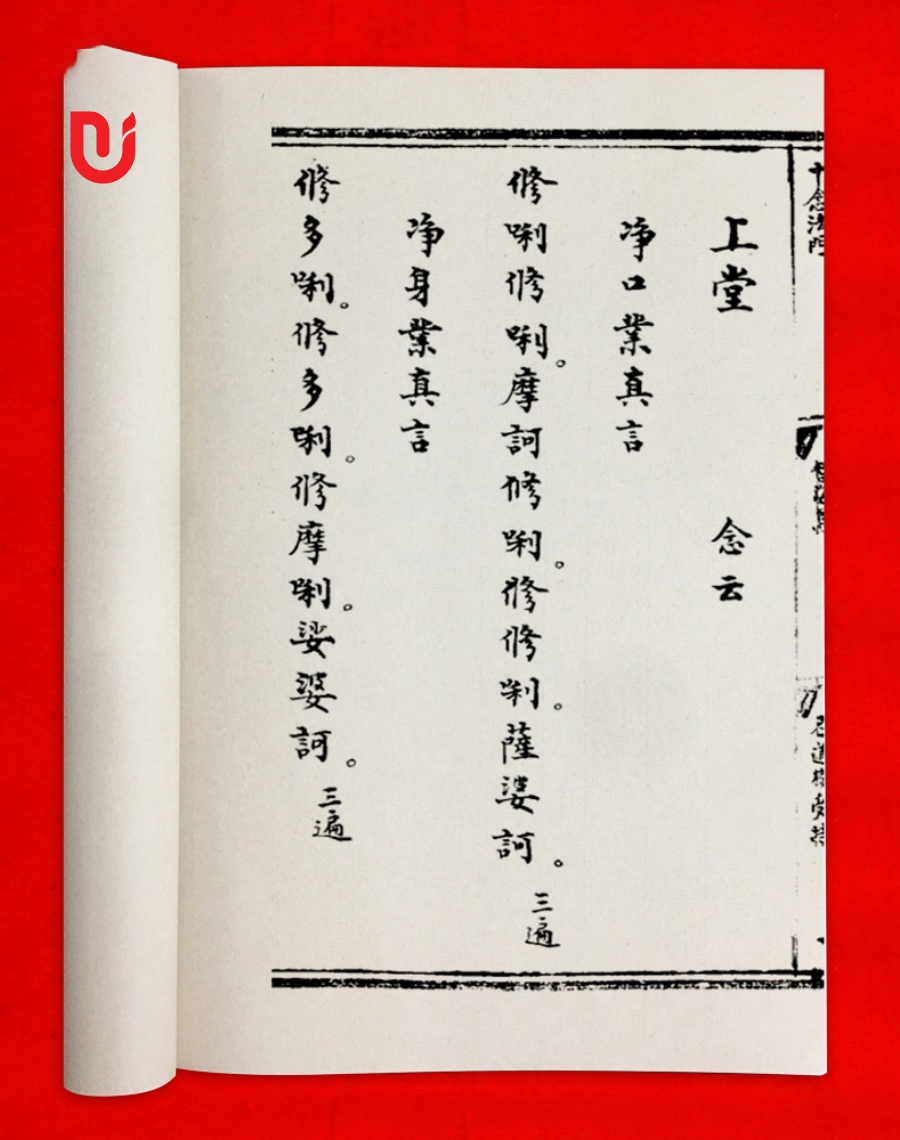 十念法門
上堂 念云
净口業真言
修唎修唎。摩訶修唎。修修唎。薩婆訶。三遍
净身業真言
修多唎。修多唎。修摩唎。娑婆訶。三遍